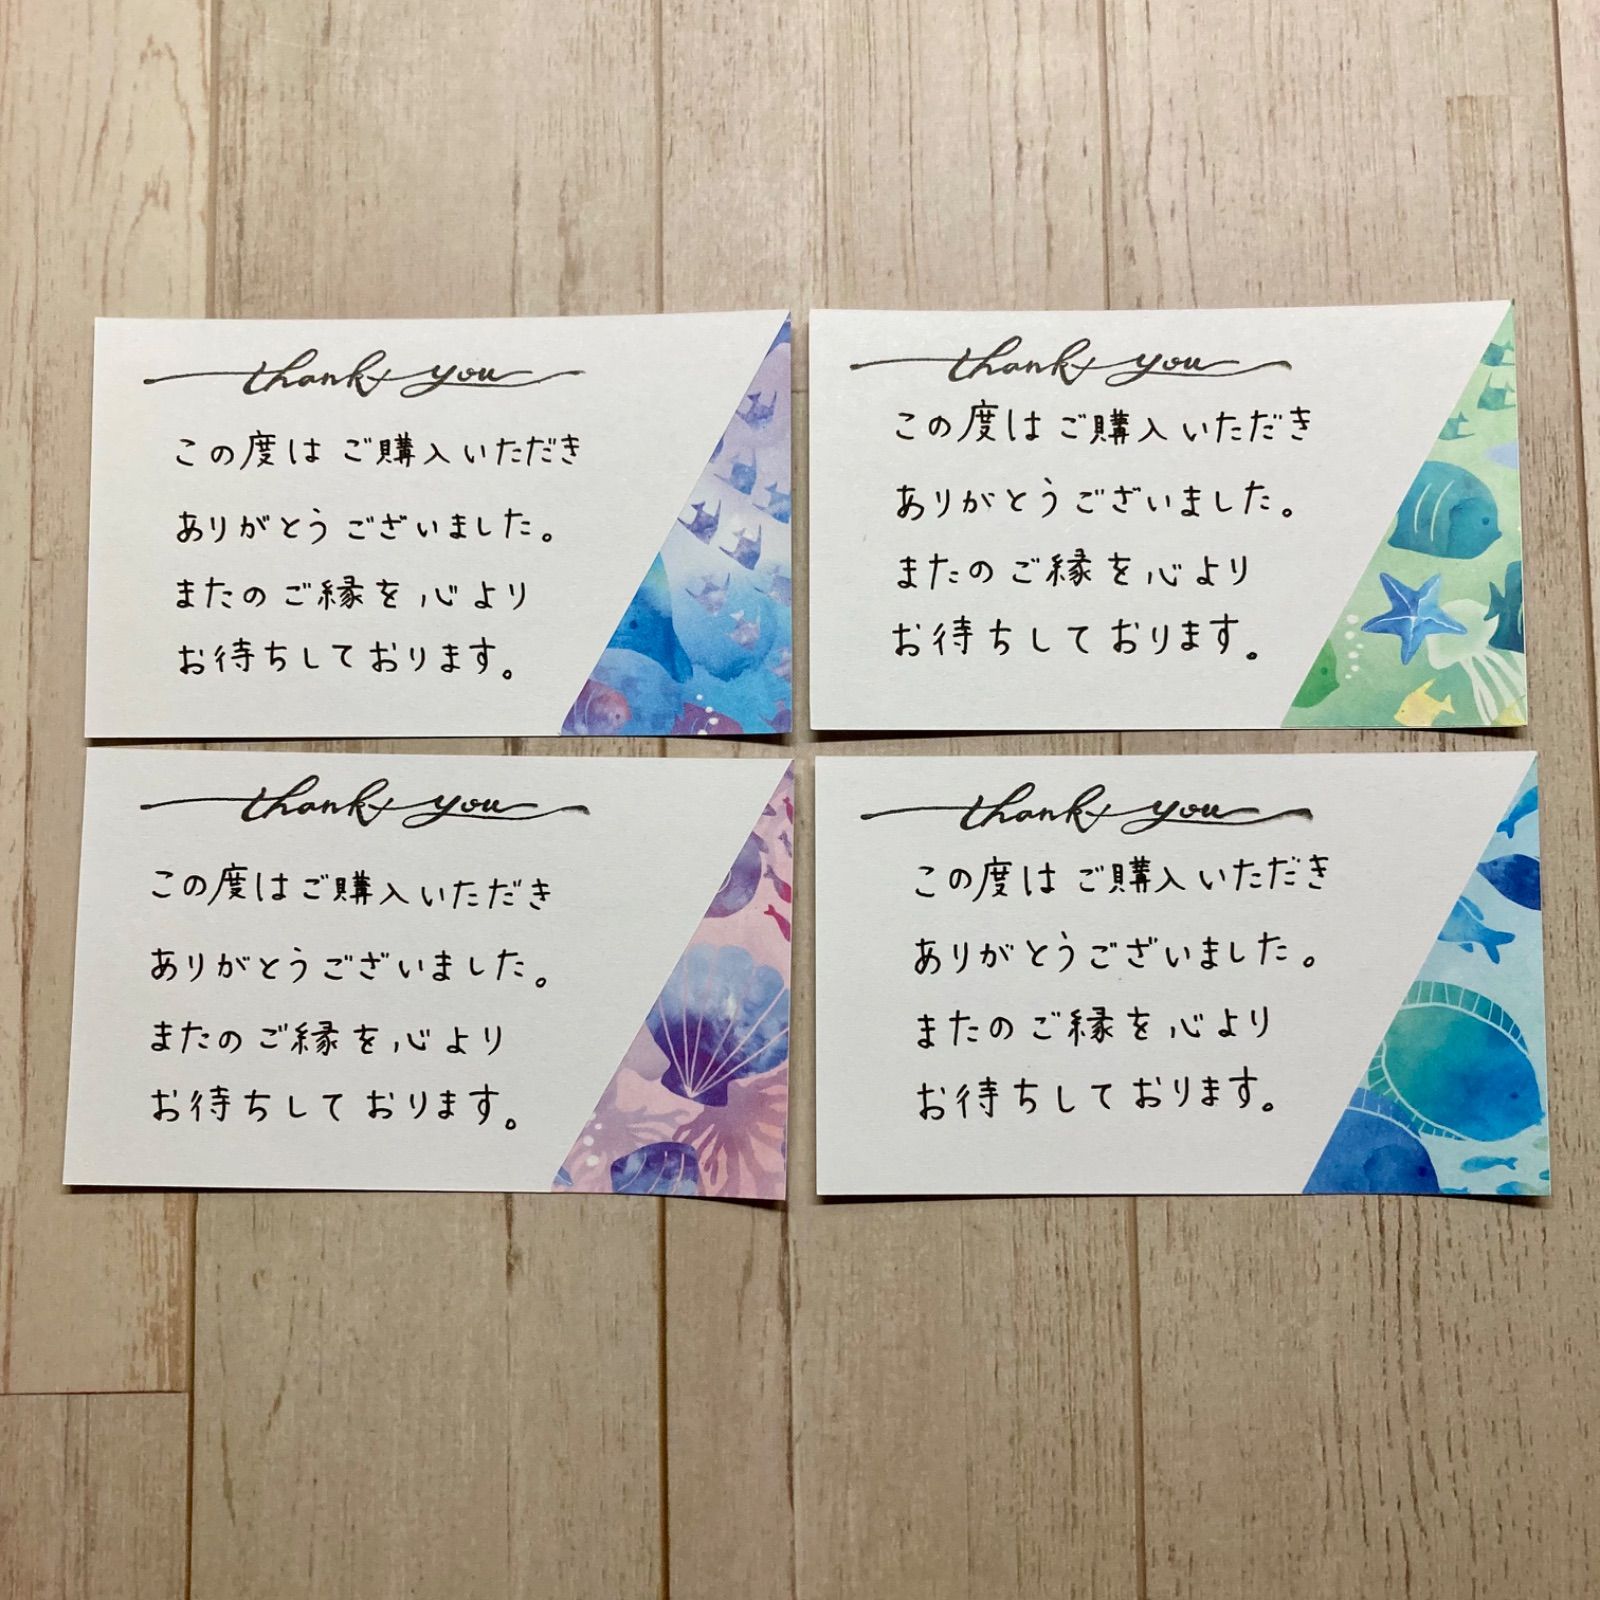 thank you
この度はご購入いただき
ありがとうございました。
またのご縁を心より
お待ちしております。
thank you
この度はご購入いただき
ありがとうございました。
またのご縁を心より
お待ちしております。
thank you
この度はご購入いただき
ありがとうございました。
またのご縁を心より
お待ちしております。
thank you
この度はご購入いただき
ありがとうございました。
またのご縁を心より
お待ちしております。